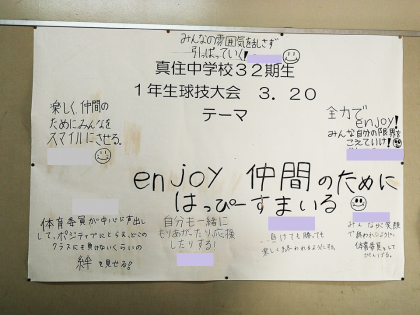 みんなの雰囲気を乱さず
引っぱっていく!
真住中学校32期生
1年生球技大会 3.20
テーマ
楽しく、仲間の
ためにみんなを
スマイルにさせる。
全力で
enjoy!
みんな自分の限界を
こえていけ!
enjoy 仲間のために
はっぴーすまいる
体育委員が中心に声出し
して、ポジティブにとらえ、どこの
クラスにも負けないくらいの
絆を見せる!
自分も一緒に
もりあがったり、応援
したりする!
負けても勝っても
楽しく終われるようにする。
みんなが笑顔
で終われるように、
体育委員として